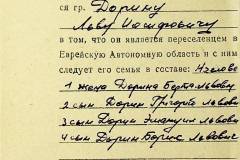 ся гр. Дорину
Льву Иосифовичу
в том, что он является переселенцем в
Еврейскую Автономную область и с ним
следует его семья в составе: 4 человек
1 жена Дорина Берта Львовна
2 сын Дорин Григорий Львович
3 сын Дорин Эмануил Львович
4 сын Дорин Борис Львович